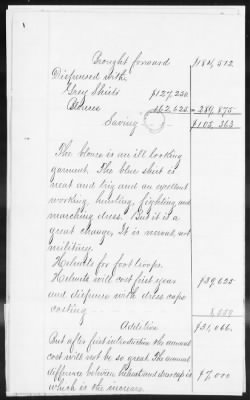 Brought forward $184,512
Dispensed with
Grey Shirts $127,250
Blouses 162,625 = 289,875
Saving $105,363
The blouse is an ill looking
garment. The blue shirt is
neat and trig and an excellent
working, hunting, fighting and
marching dress. But it is a
great change. It is not
military.
Helmets for foot troops.
Helmets will cost first year $39,625
and dispense with dress caps
costing 8,559
Addition $31,066.
But after first introduction the annual
cost will not be so great. The annual
difference between helmet and dress cap is $7,000
which is the increase.